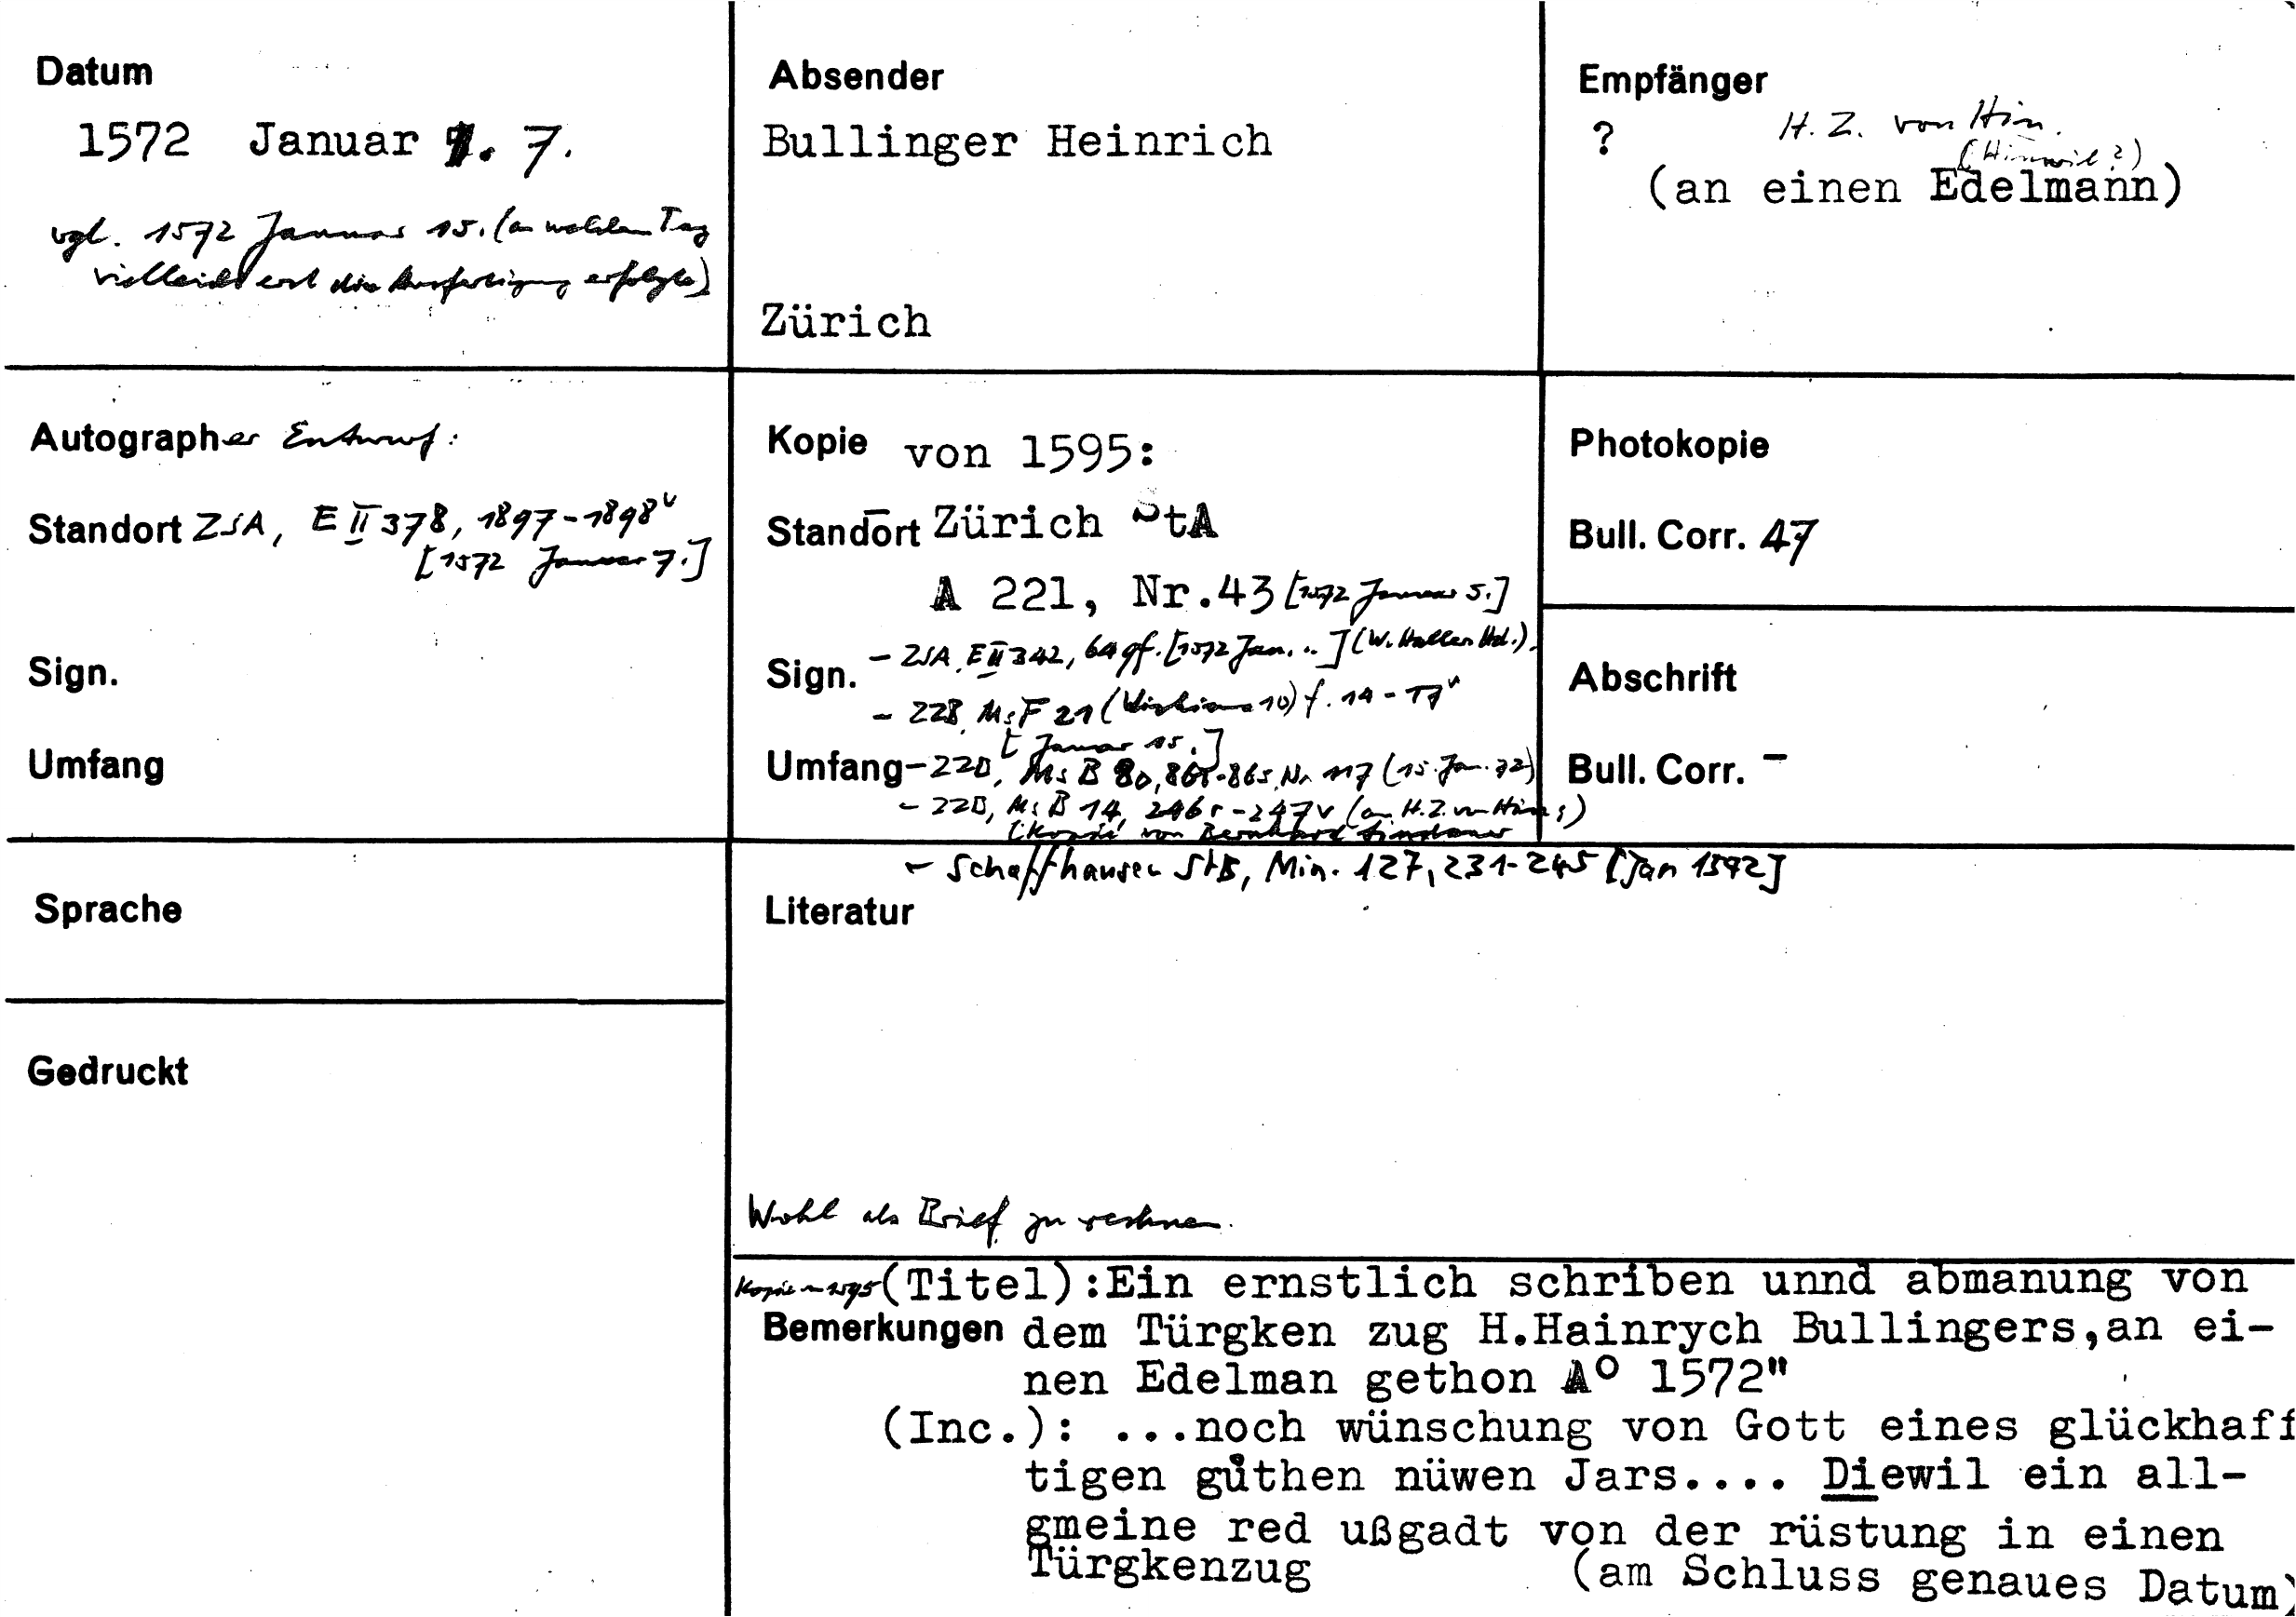 Datum
1572 Januar 7.
vgl. 1572 Januar 15. (an welchem Tag
vielleicht erst die Ausfertigung erfolgte)
Absender
Bullinger Heinrich
Zürich
Empfänger
? H. Z. von Hin.
(Hinwil?)
(an einen Edelmann)
Autographer Entwurf:
Standort ZSA, E II 378, 1897-1898v
[1572 Januar 7.]
Sign.
Umfang
Kopie von 1595:
Standort Zürich StA
A 221, Nr.43 [1572 Januar 5.]
Sign. - ZSA E II 342, 649f. [1572 Jan. ..] (W. Haller Hd.)
- ZZB, Ms F 21 f. 14-17v
[Januar 15.]
Umfang - ZZB, Ms B 80, -865, Nr. 117 (15. Jan. 72)
- ZZB, Ms B 14, 246r-247v (an H.Z. von Hin;)
(Kopie von Bernhard Lindauer
- Schaffhausen StB, Min. 127, 231-245 [Jan 1592]
Photokopie
Bull. Corr. 47
Abschrift
Bull. Corr. -
Sprache
Gedruckt
Literatur
Wohl als Brief zu rechnen.
Kopie von 1595 (Titel):Ein ernstlich schriben unnd abmanung von
Bemerkungen dem Türgken zug H.Hainrych Bullingers,an ei-
nen Edelman gethon A° 1572"
(Inc.): ...noch wünschung von Gott eines glückhaff
tigen gůthen nüwen Jars.... Diewil ein all-
gmeine red ußgadt von der rüstung in einen
Türgkenzug (am Schluss genaues Datum)